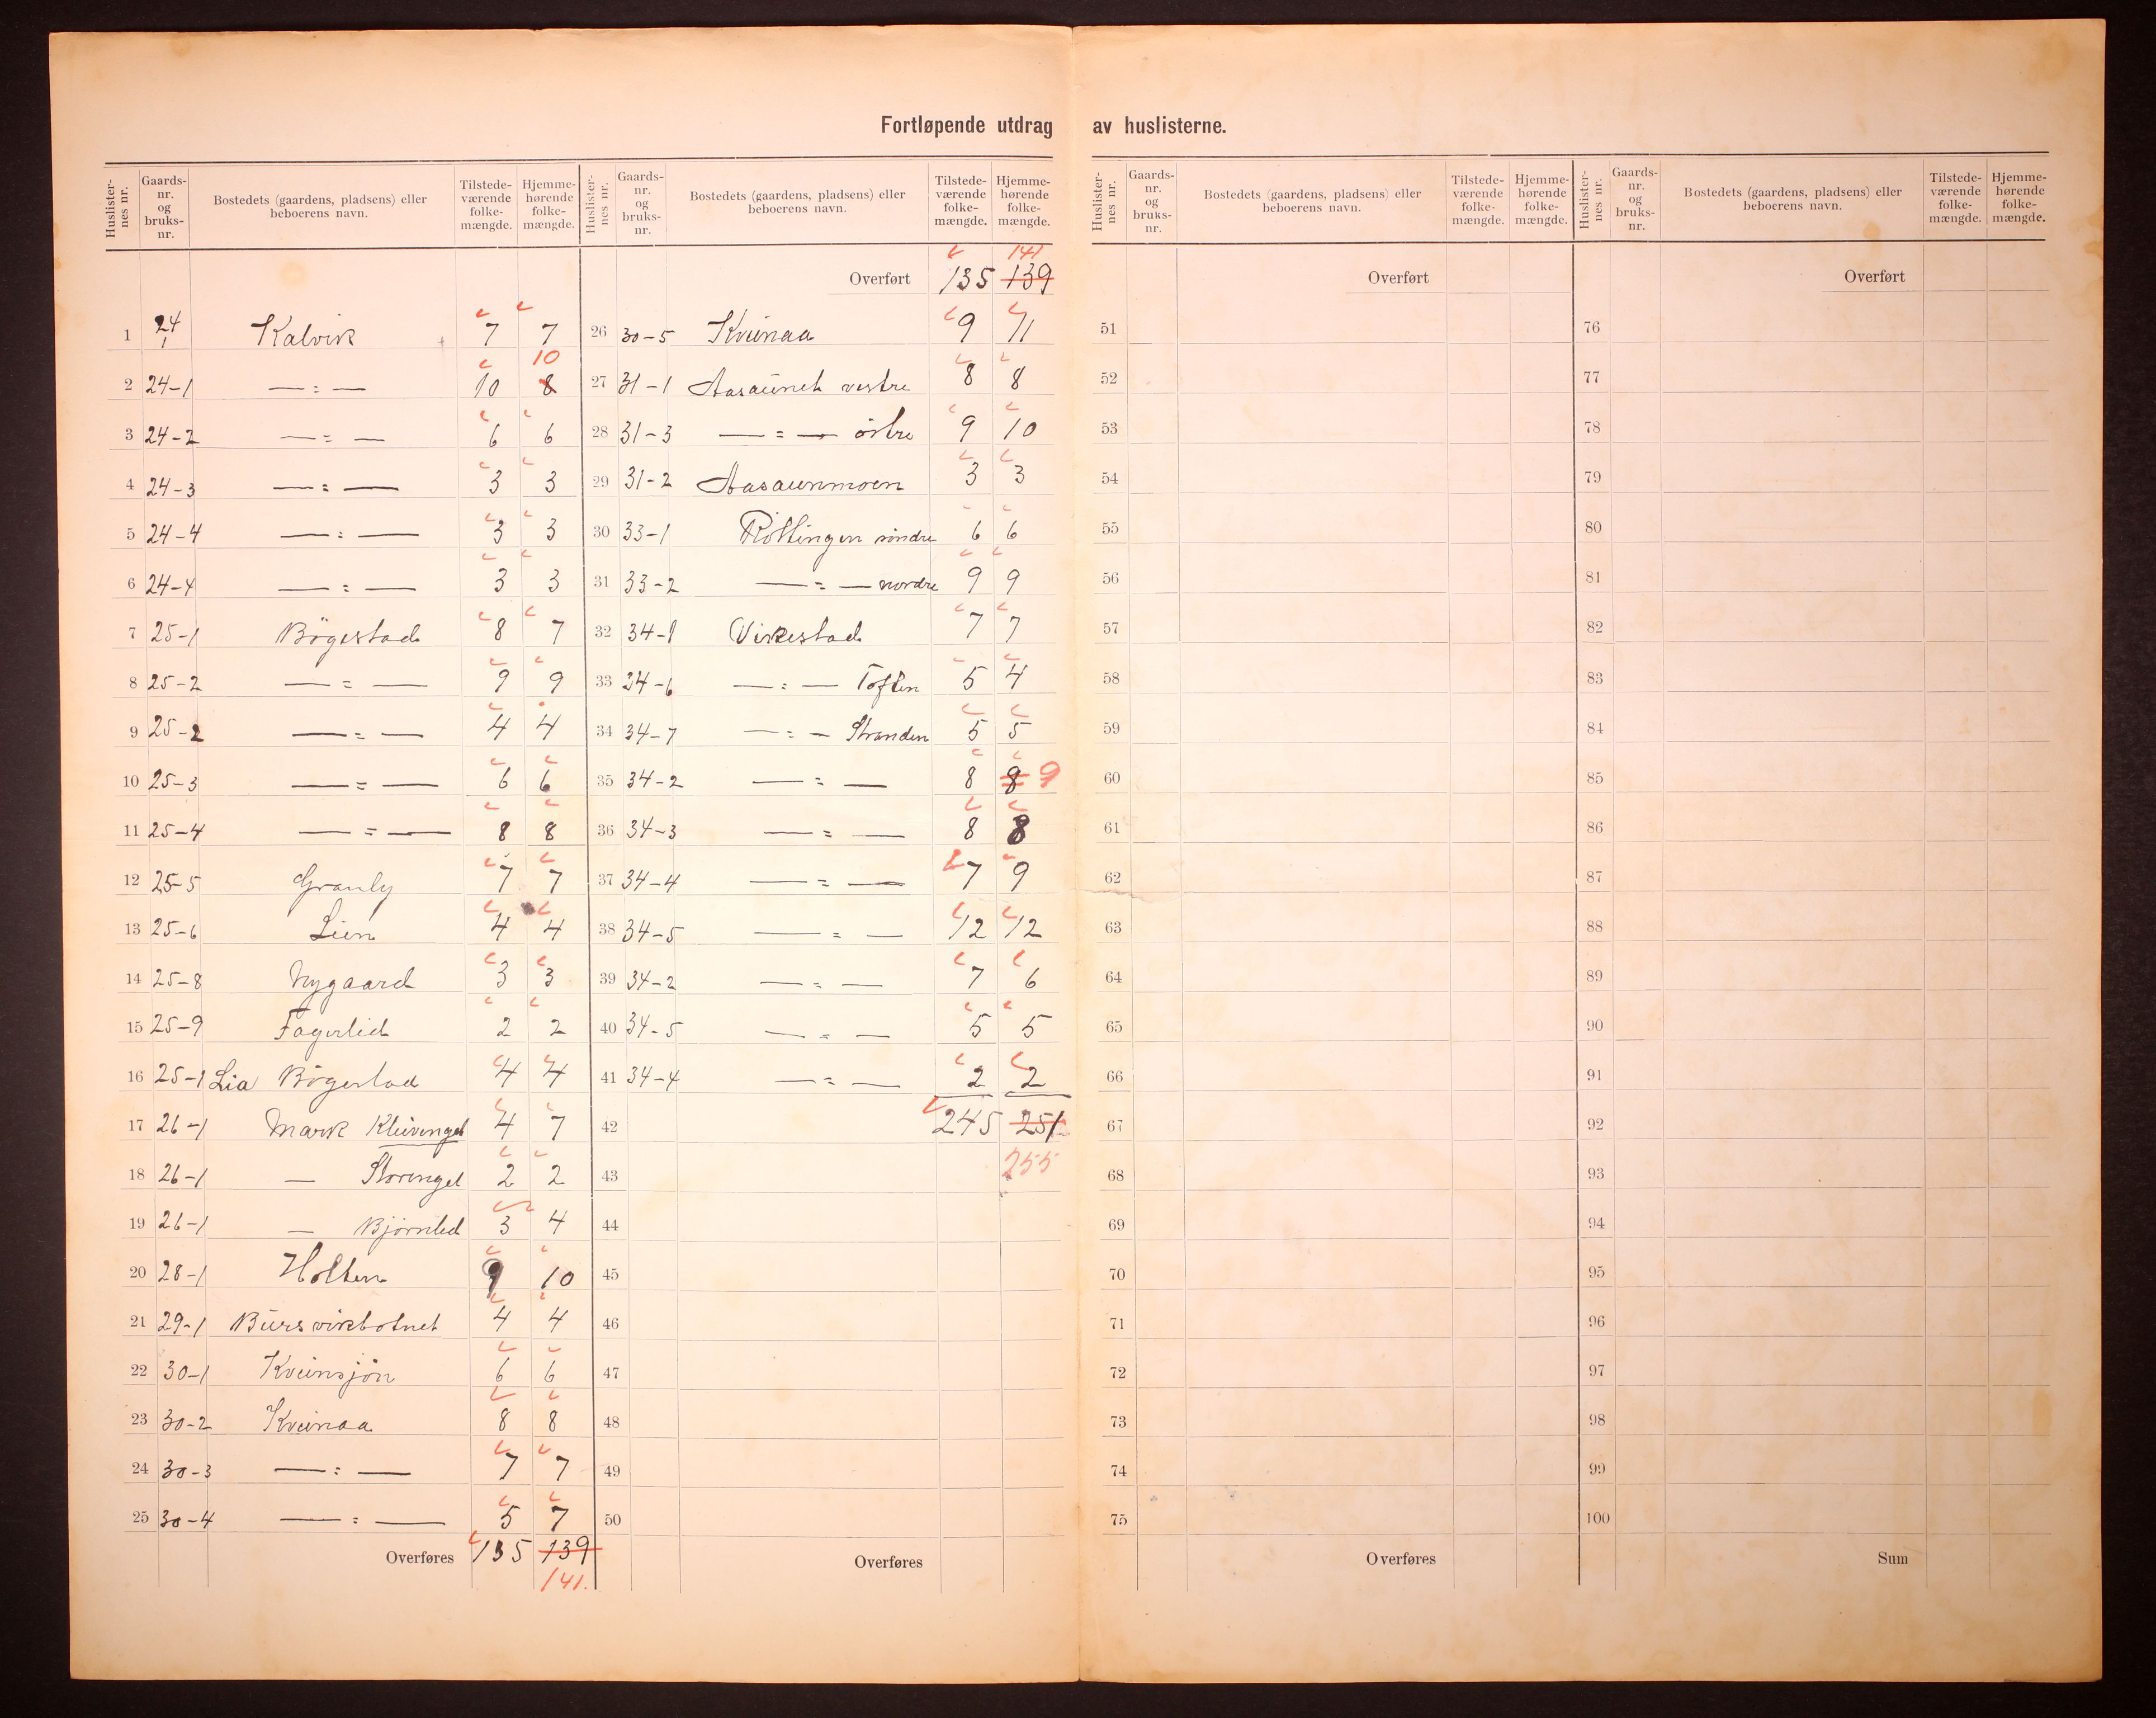 Fortløpende utdrag av huslisterne.
Huslister-nes nr. Gaards-nr. og bruks-nr. Bostedets (gaardens, pladsens) eller beboerens navn. Tilstede-værende folke-mængde. Hjemme-hørende folke-mængde.
1 24 1 Kalvik 7 7
2 24-1 — : — 10 8 10
3 24-2 — : — 6 6
4 24-3 — : — 3 3
5 24-4 — : — 3 3
6 24-4 — : — 3 3
7 25-1 Bögestad 8 7
8 25-2 — = — 9 9
9 25-2 — = — 4 4
10 25-3 — = — 6 6
11 25-4 — = — 8 8
12 25-5 Granly 7 7
13 25-6 Lien 4 4
14 25-8 Nygaard 3 3
15 25-9 Fagerlid 2 2
16 25-1 Lia Bögestad 4 4
17 26-1 Mark Kleivenget 4 7
18 26-1 — Storenget 2 2
19 26-1 — Bjørnlid 3 4
20 28-1 Holten 9 10
21 29-1 Bursvikbotnet 4 4
22 30-1 Kveinsjön 6 6
23 30-2 Kveinaa 8 8
24 30-3 — : — 7 7
25 30-4 — : — 5 7
Overføres 135 139
141.
Huslister-nes nr. Gaards-nr. og bruks-nr. Bostedets (gaardens, pladsens) eller beboerens navn. Tilstede-værende folke-mængde. Hjemme-hørende folke-mængde.
141
Overført 135 139
26 30-5 Kveinaa 9 11
27 31-1 Aasaunet vestre 8 8
28 31-3 — = — östre 9 10
29 31-2 Aasaunmoen 3 3
30 33-1 Röttingen söndre 6 6
31 33-2 — = — nordre 9 9
32 34-1 Virkestad 7 7
33 34-6 — : — Toften 5 4
34 34-7 — : — Stranden 5 5
35 34-2 — = — 8 8 9
36 34-3 — = — 8 8
37 34-4 — = — 7 9
38 34-5 — = — 12 12
39 34-2 — = — 7 6
40 34-5 — = — 5 5
41 34-4 — = — 2 2
42 245 251
43 255
44
45
46
47
48
49
50
Overføres
Huslister-nes nr. Gaards-nr. og bruks-nr. Bostedets (gaardens, pladsens) eller beboerens navn. Tilstede-værende folke-mængde. Hjemme-hørende folke-mængde.
Overført
51
52
53
54
55
56
57
58
59
60
61
62
63
64
65
66
67
68
69
70
71
72
73
74
75
Overføres
Huslister-nes nr. Gaards-nr. og bruks-nr. Bostedets (gaardens, pladsens) eller beboerens navn. Tilstede-værende folke-mængde. Hjemme-hørende folke-mængde.
Overført
76
77
78
79
80
81
82
83
84
85
86
87
88
89
90
91
92
93
94
95
96
97
98
99
100
Sum